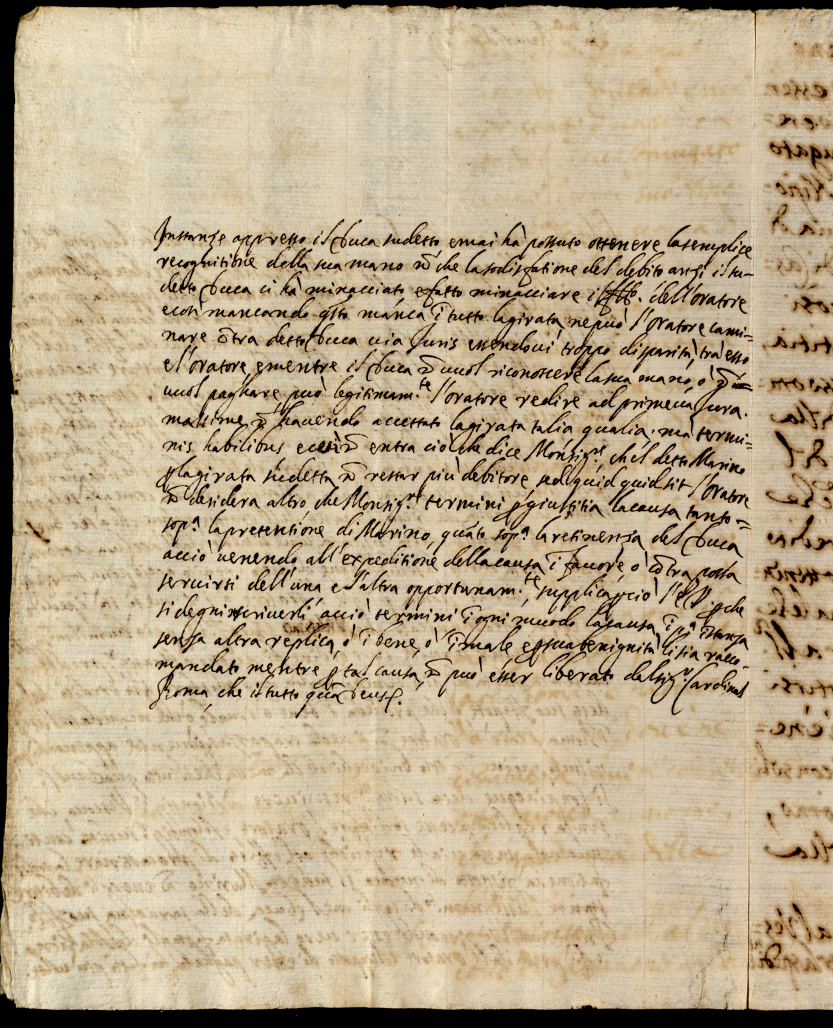 Instanze appresso il Duca sudetto e mai hà possuto ottenere la semplice
recognitione della sua mano nō che la sodisfatione del debito anzi il su-
detto Duca ci hà minacciato e fatto minacciare dell'oratore
e così mancando q̄sto manca ī tutto la girata, ne può l'oratore cami-
nare cōtra detto Duca via Juris essendovi troppo disparità trà esso
e l'oratore, e mentre il Duca nō vuol riconoscere la sua mano, ò nō
vuol paghare può legitimam.te l'oratore redire ad primeva Jura.
massime nō havendo accettato la girata talia qualia. mà termi-
nis habilibus e così nō entra ciò che dice Monsig.r ch'el detto Marino
p̱ la girata sudetta nō restar più debitore, sed quid quid sit l'oratore
nō desidera altro che Monsig.r termini p̱ giustitia la causa tanto
sop.a la pretentione di Marino, quāto sop.a la retinenza del Duca
acciò venendo all'expeditione della causa ī favore, ò cōtra possa
servirsi dell'una e l'altra opportunam.te supplica p̱ciò che
si degni scriverli acciò termini ī ogni muodo la causa ī p.a istanza
senza altra replica ò ī bene, ò ī male e p̱ sua benignità li sia racco-
mandato mentre p̱ tal causa nō può esser liberato dal sig.r Cardinal
Roma, che il tutto Deus.